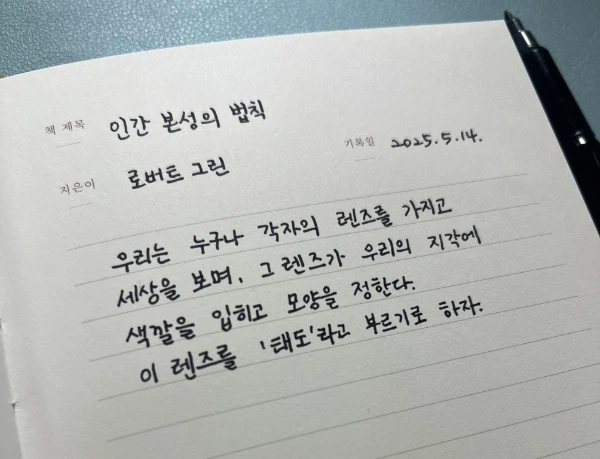 책 제목 인간 본성의 법칙
지은이 로버트 그린
기록일 2025.5.14.
우리는 누구나 각자의 렌즈를 가지고
세상을 보며, 그 렌즈가 우리의 지각에
색깔을 입히고 모양을 정한다.
이 렌즈를 '태도'라고 부르기로 하자.